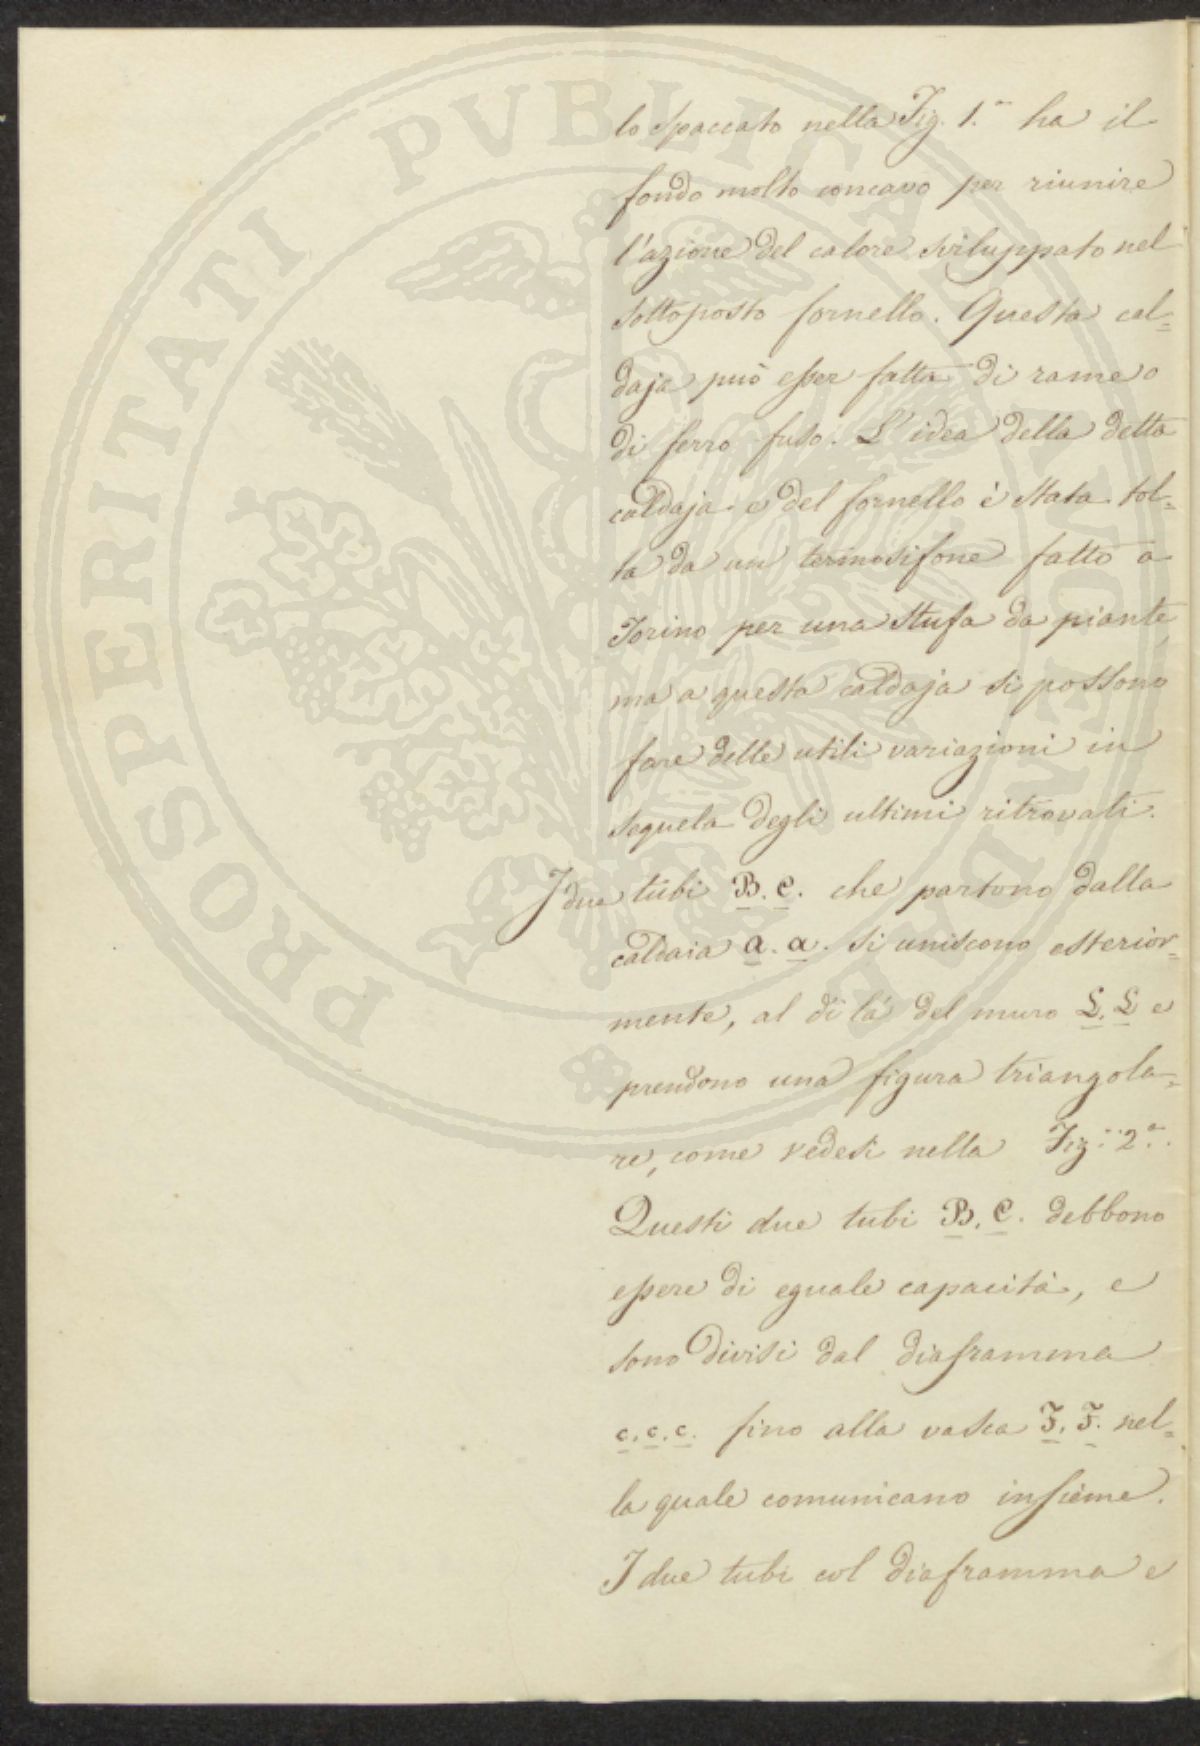 lo spaccato nella Fig. 1.a ha il
fondo molto concavo per riunire
l'azione del calore sviluppato nel
sottoposto fornello. Questa cal=
daja può esser fatta di rame o
di ferro fuso. L'idea della detta
caldaja e del fornello è stata tol=
ta da un termosifone fatto a
Torino per una stufa da piante
ma a questa caldaja si possono
fare delle utili variazioni in
sequela degli ultimi ritrovati.
I due tubi B. C. che partono dalla
caldaia a. a. si uniscono esterior=
mente, al di là del muro L. L e
prendono una figura triangola=
re, come vedesi nella Fig: 2.a
Questi due tubi B. C. debbono
essere di eguale capacità, e
sono divisi dal diaframma
c. c. c. fino alla vasca F. F. nel=
la quale comunicano insieme.
I due tubi col diaframma e
PROSPERITATI PVBLICAE AVGENDAE